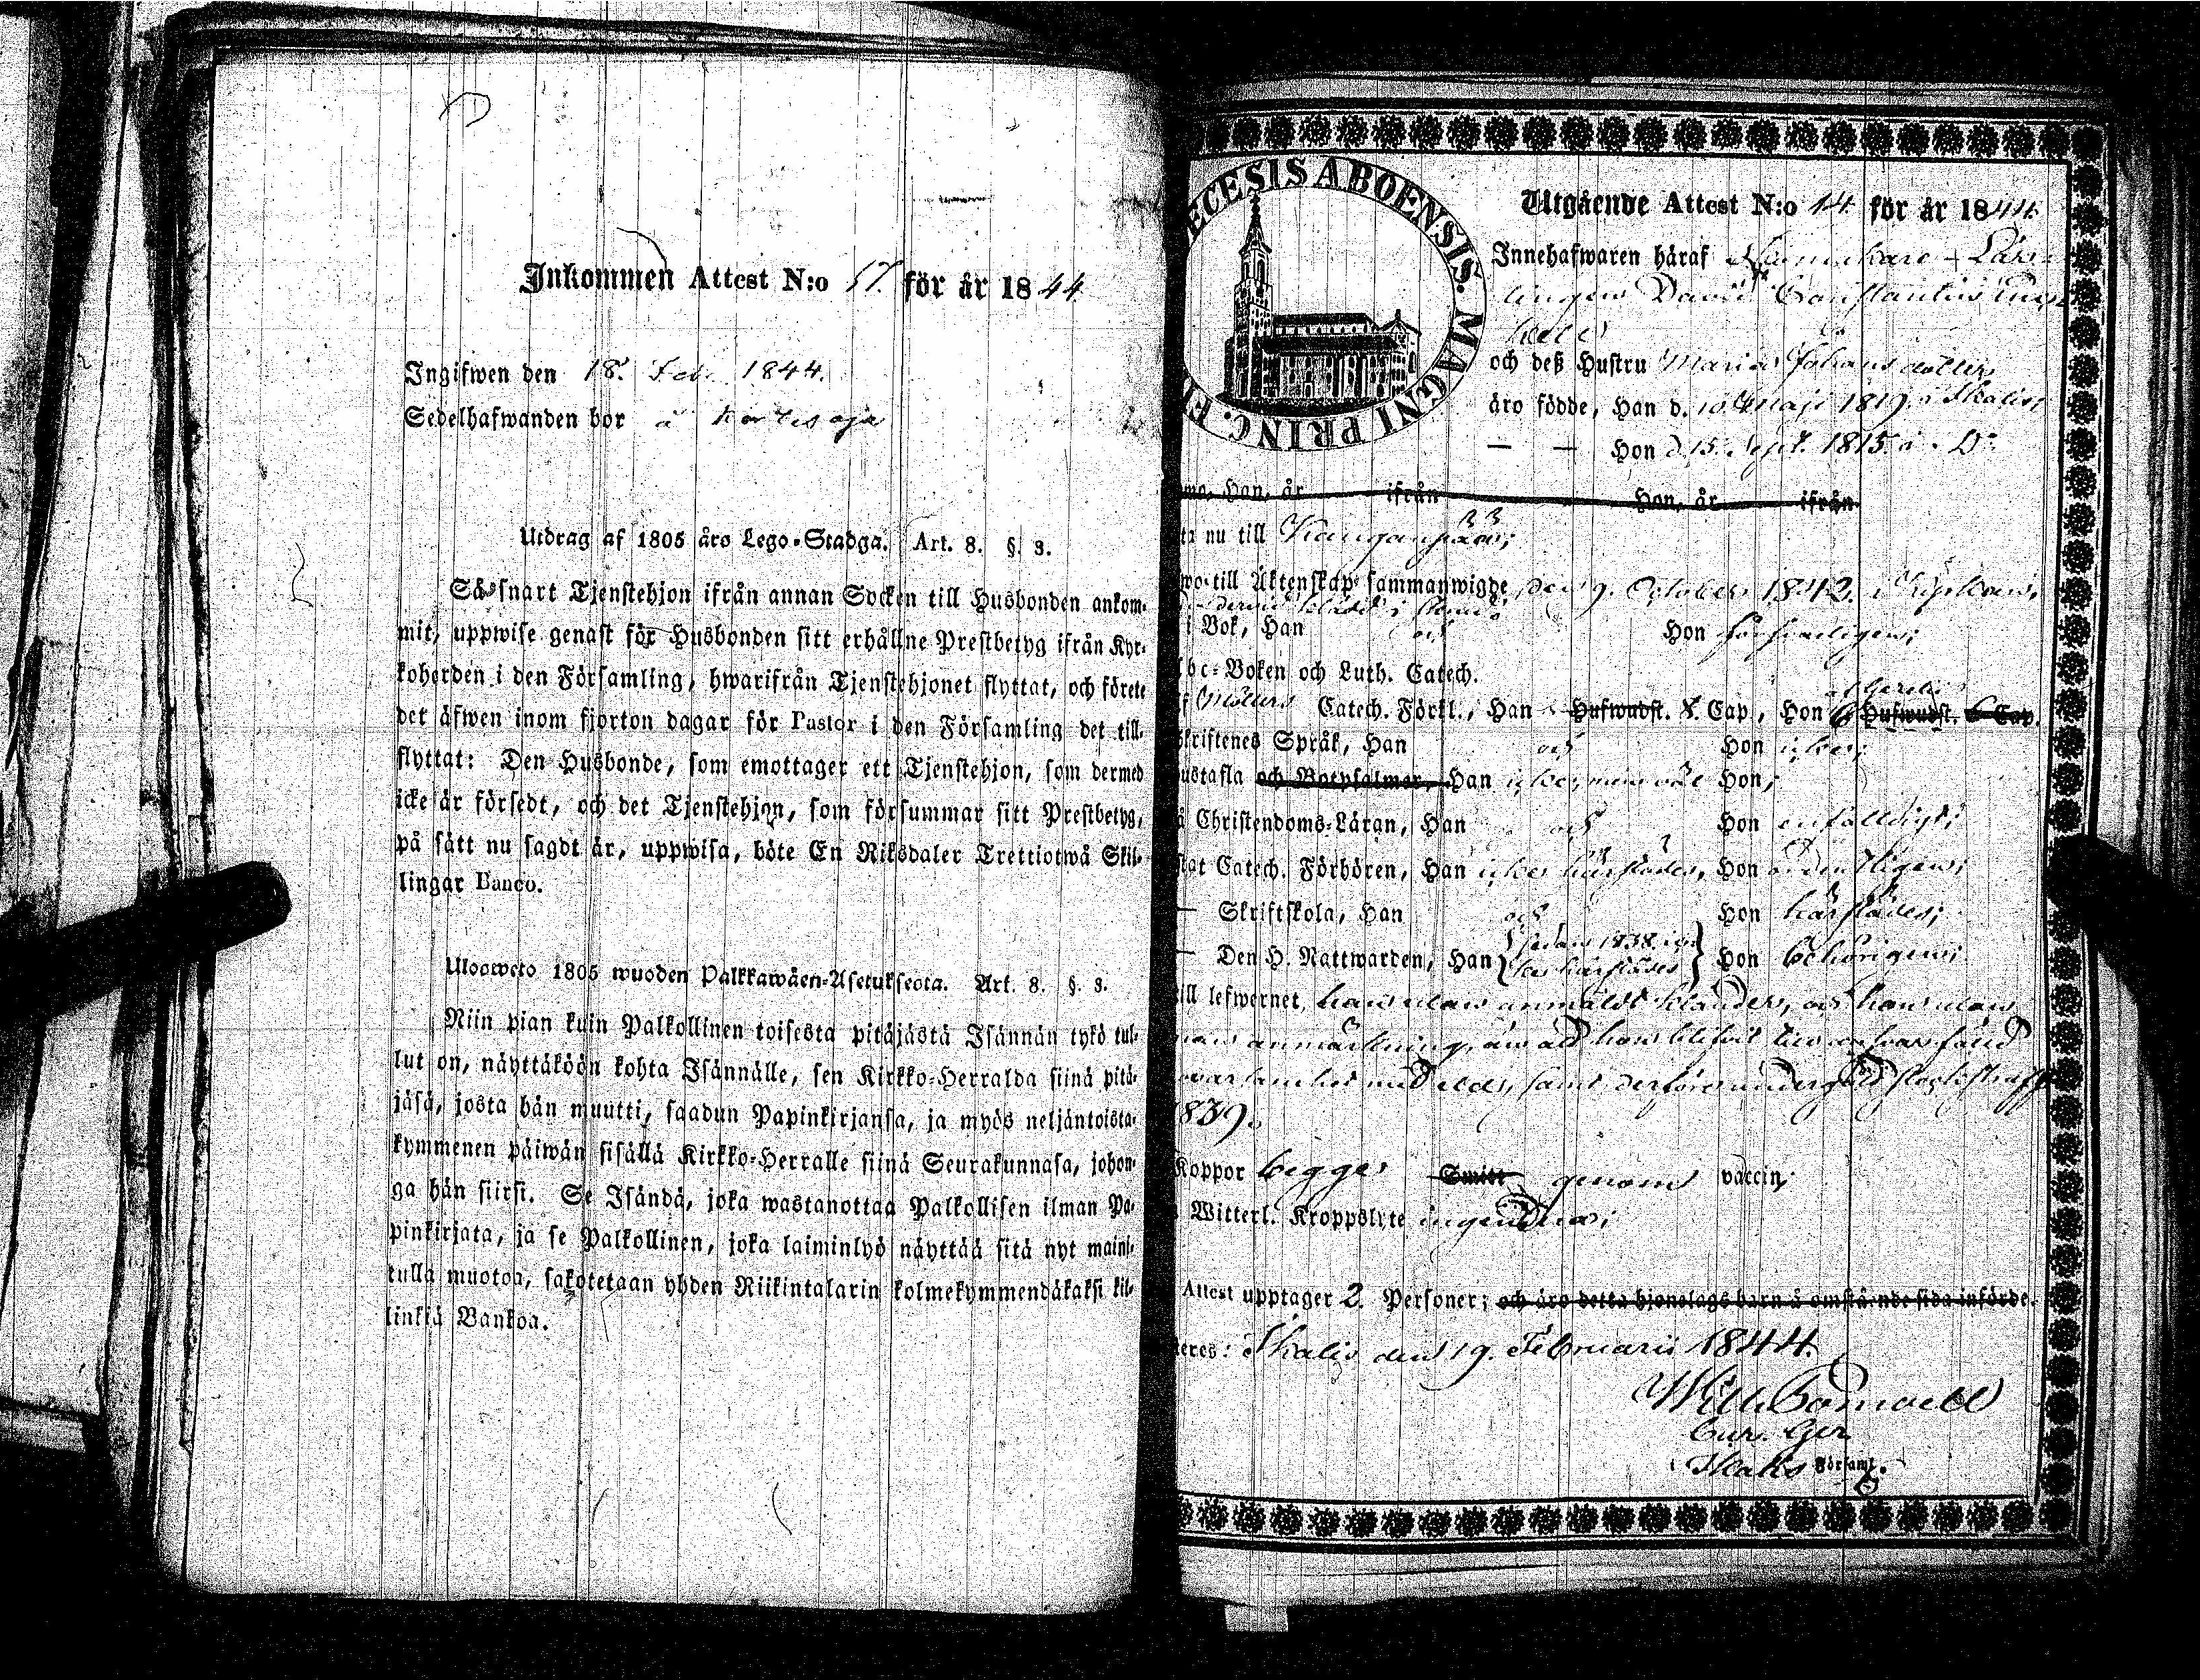 Inkommen Attest N:o 17. för år 1844
Ingifwen den 18. Feb. 1844.
Sedelhafwanden bor å
Utdrag af 1805 års Lego-Stadga. Art. 8. §. 3.
Så snart Tjenstehjon ifrån annan Socken till Husbonden ankom-
mit, uppwise genast för Husbonden sitt erhållne Prestbetyg ifrån Kyr-
koherden i den Församling, hwarifrån Tjenstehjonet flyttat, och förete
det äfwen inom fjorton dagar för Pastor i den Församling det till-
flyttat: Den Husbonde, som emottager ett Tjenstehjon, som dermed
icke är försedt, och det Tjenstehjon, som försummar sitt Prestbetyg,
på sätt nu sagdt är, uppwisa, böte En Riksdaler Trettiotwå Skil-
lingar Banco.
Ulosweto 1805 wuoden Palkkawäen-Asetuksesta. Art. 8. §. 3.
Niin pian kuin Palkollinen toisesta pitäjästä Isännän tykö tul-
lut on, näyttäköön kohta Isännälle, sen Kirkko-Herralda siinä pitä-
jäsä, josta hän muutti, saadun Papinkirjansa, ja myös neljäntoista-
kymmenen päiwän sisällä Kirkko-Herralle siinä Seurakunnasa, johon-
ga hän siirsi. Se Isändä, joka wastanottaa Palkollisen ilman Pa-
pinkirjata, ja se Palkollinen, joka laiminlyö näyttää sitä nyt maini-
tulla muotoa, sakotetaan yhden Riikintalarin kolmekymmendäkaksi kil-
linkiä Bankoa.
ECESIS ABOENSIS. MAGNI PRINC. FI
Utgående Attest N:o 14 för år 1844.
Innehafwaren häraf
David Constantin
och deß Hustru Maria Johansdotter
äro födde, Han d. 10 Maji 1819. i Skalis
— — Hon d. 15. Sept. 1815 i D:o
Han, år ifrån Hon, år ifrån
nu till
till Äktenskap sammanwigde den 9. October 1842.
i Bok, Han och Hon försvarligen;
bc-Boken och Luth. Catech.
Catech. Förkl., Han Hufwudst. 8. Cap, Hon Hufwudst. 6 Cap.
kriftenes Språk, Han och Hon icke;
ustafla och Botpsalmer, Han icke, men väl Hon;
å Christendoms-Läran, Han och Hon enfaldigt;
tat Catech. Förhören, Han icke härstädes, Hon ordentligen;
— Skriftskola, Han och Hon härstädes;
— Den H. Nattwarden, Han sedan 1838 icke härstädes Hon behörigen;
ill lefwernet, hon utan anmäldt klander, och han utan
anmärkning, än att han blifvit
med eld, samt derföre undergått
1839.
Koppor begge Smitt genom vaccin;
Witterl. Kroppslyte ingendera;
Attest upptager 2. Personer; och äro detta hjonelags barn å omstående sida införde.
eres: Skalis den 19. Februarii 1844.
Cur. Ger.
Skalis Församl.